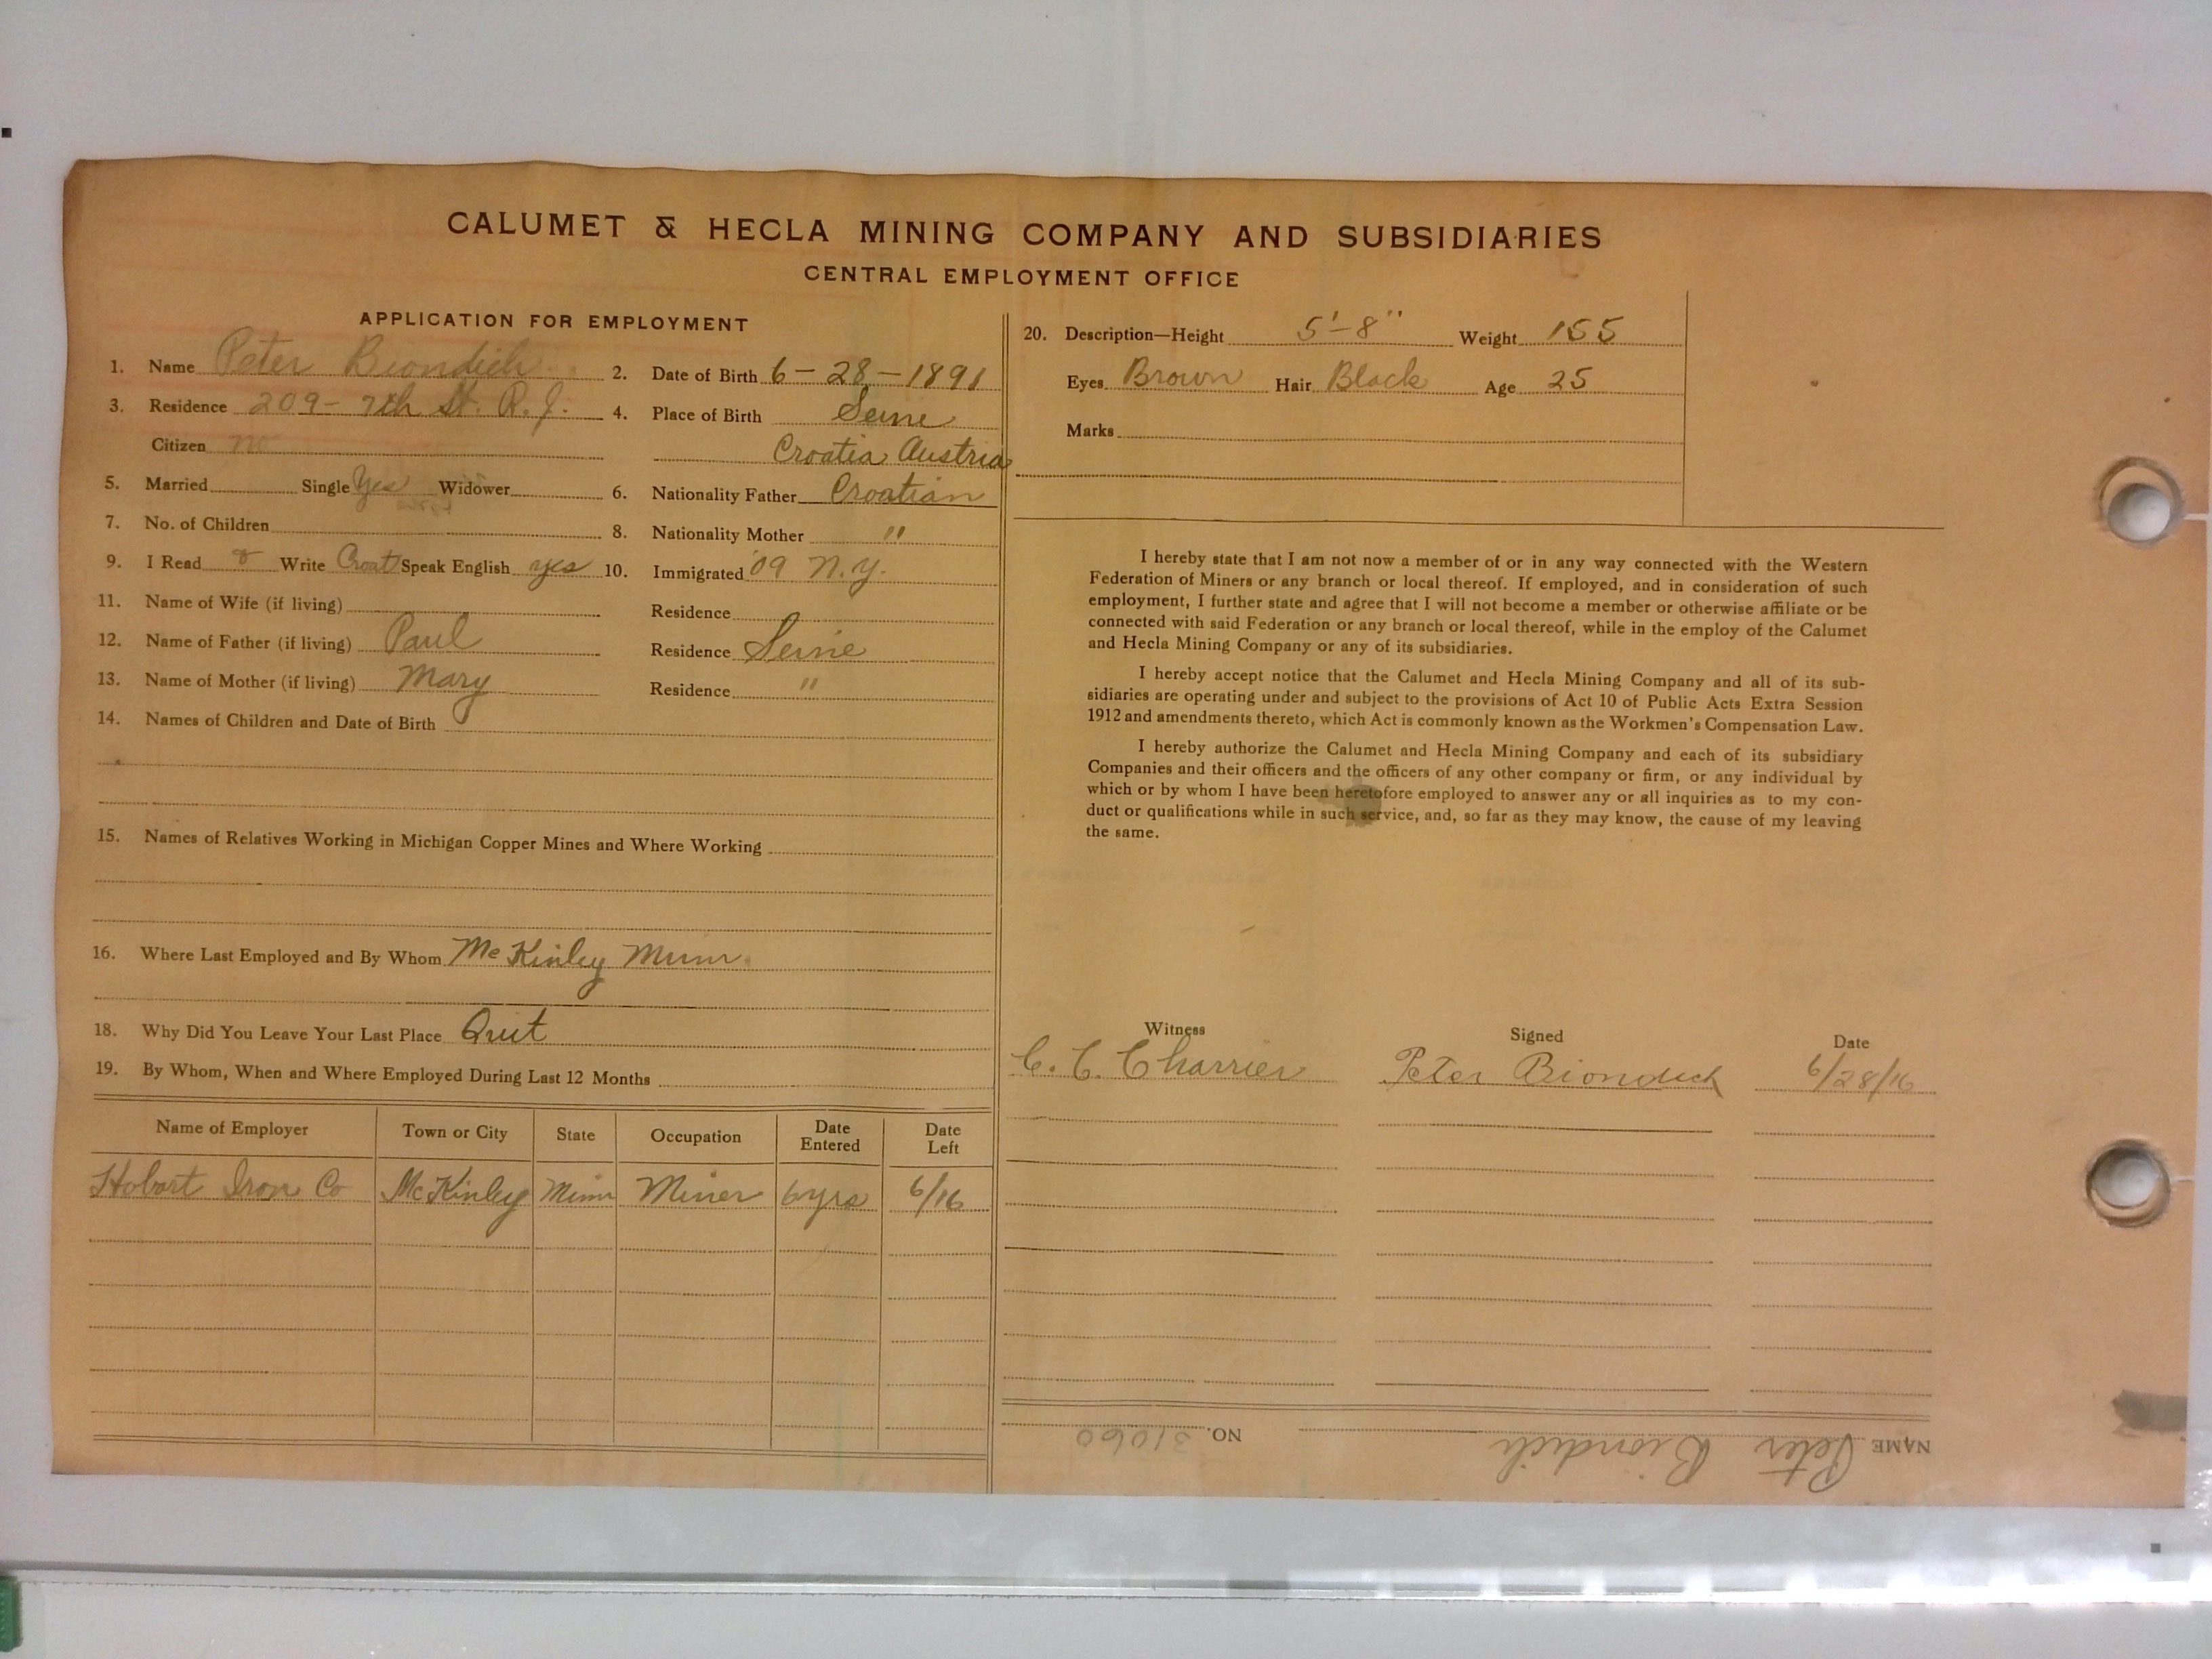 CALUMET & HECLA MINING COMPANY AND SUBSIDIARIES
CENTRAL EMPLOYMENT OFFICE
APPLICATION FOR EMPLOYMENT
1. Name Peter Biondich 2. Date of Birth 6-28-1891
3. Residence 209-7th St. R.J. 4. Place of Birth Seine
Citizen no Croatia Austria
5. Married Single Yes Widower 6. Nationality Father Croatian
7. No. of Children 8. Nationality Mother "
9. I Read & Write Croat Speak English yes 10. Immigrated '09 N.Y.
11. Name of Wife (if living) Residence
12. Name of Father (if living) Paul Residence Seine
13. Name of Mother (if living) Mary Residence "
14. Names of Children and Date of Birth
15. Names of Relatives Working in Michigan Copper Mines and Where Working
16. Where Last Employed and By Whom McKinley Minn.
18. Why Did You Leave Your Last Place Quit
19. By Whom, When and Where Employed During Last 12 Months
Name of Employer Town or City State Occupation Date Entered Date Left
Hobart Iron Co McKinley Minn Miner 6yrs 6/16
20. Description—Height 5'-8" Weight 155
Eyes Brown Hair Black Age 25
Marks
I hereby state that I am not now a member of or in any way connected with the Western
Federation of Miners or any branch or local thereof. If employed, and in consideration of such
employment, I further state and agree that I will not become a member or otherwise affiliate or be
connected with said Federation or any branch or local thereof, while in the employ of the Calumet
and Hecla Mining Company or any of its subsidiaries.
I hereby accept notice that the Calumet and Hecla Mining Company and all of its sub-
sidiaries are operating under and subject to the provisions of Act 10 of Public Acts Extra Session
1912 and amendments thereto, which Act is commonly known as the Workmen's Compensation Law.
I hereby authorize the Calumet and Hecla Mining Company and each of its subsidiary
Companies and their officers and the officers of any other company or firm, or any individual by
which or by whom I have been heretofore employed to answer any or all inquiries as to my con-
duct or qualifications while in such service, and, so far as they may know, the cause of my leaving
the same.
Witness Signed Date
C. C. Charrier Peter Biondich 6/28/16
NAME Peter Biondich NO. 31060